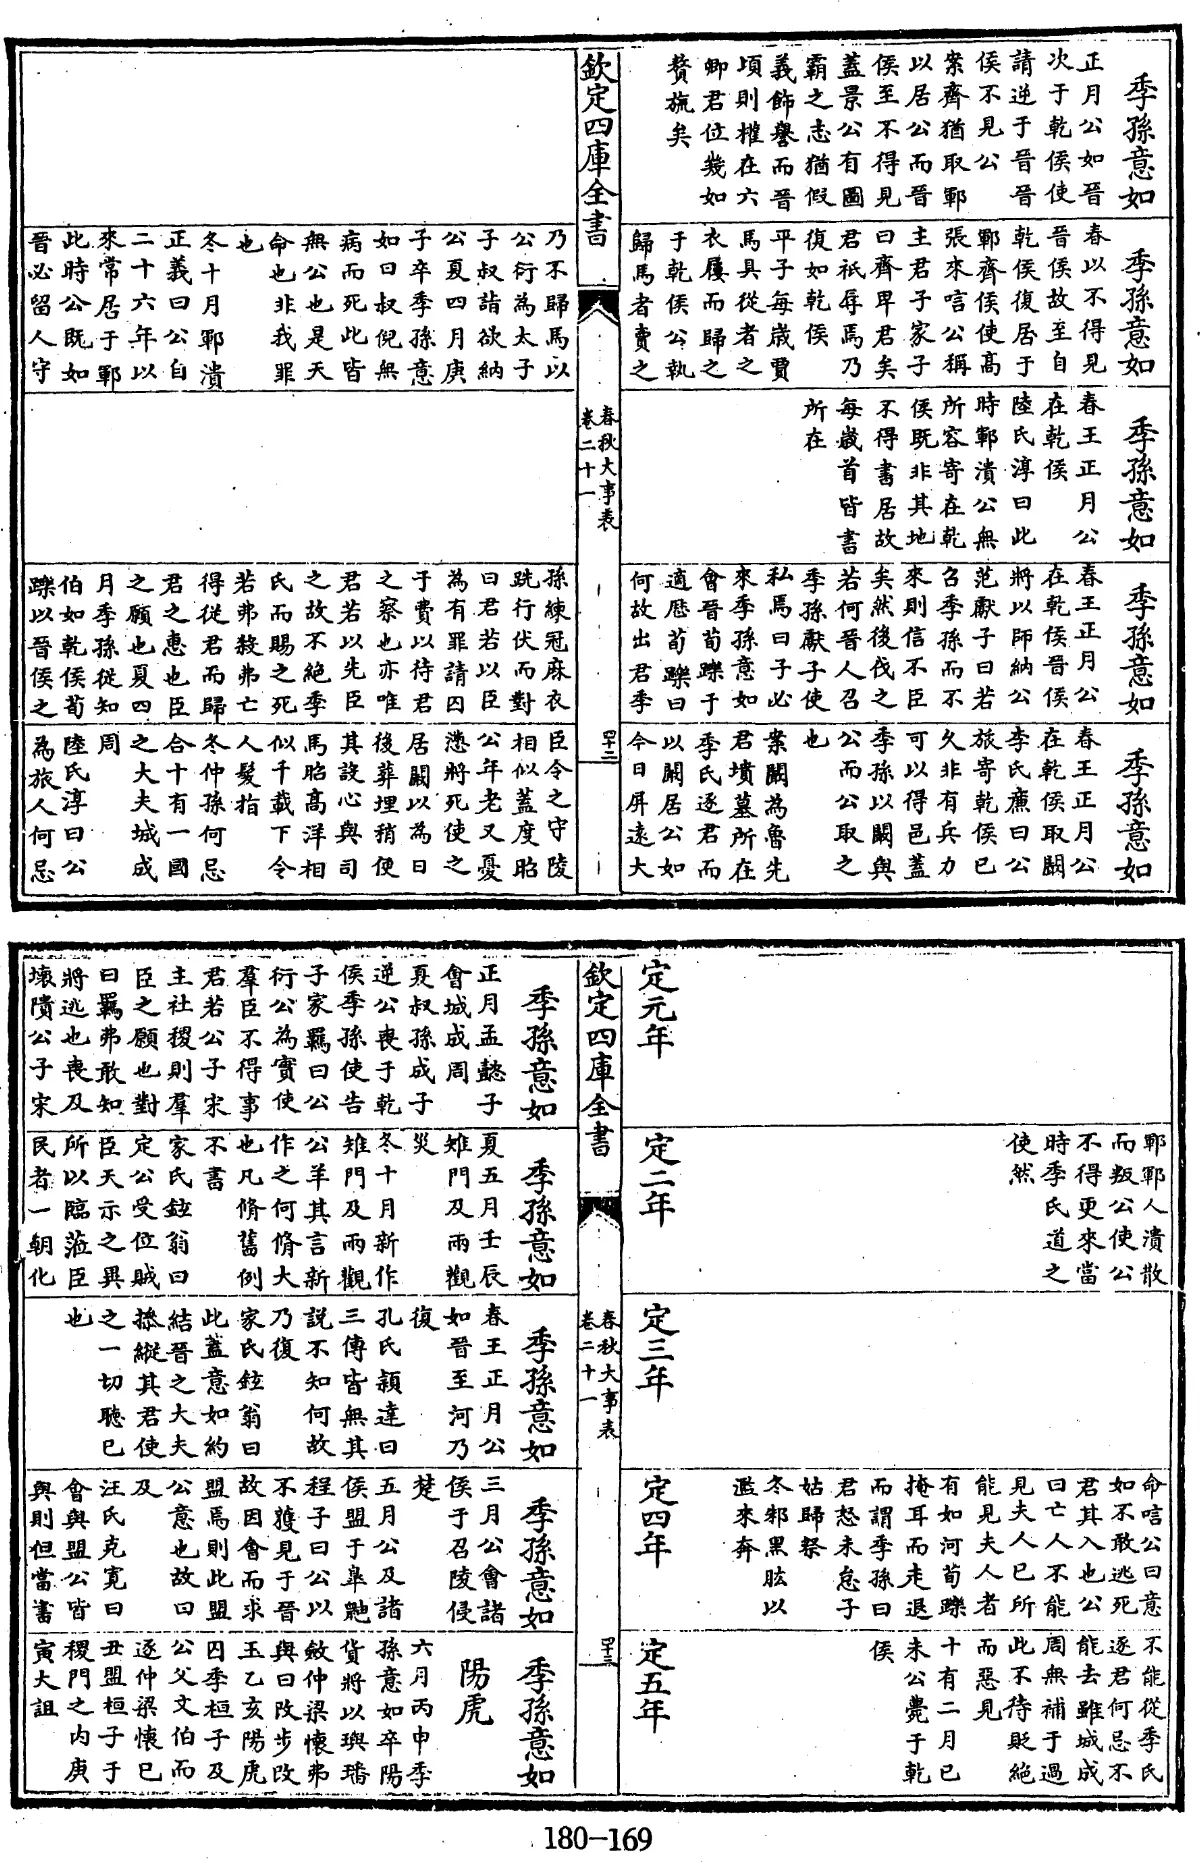 季孫意如
正月公如晉
次于乾侯使
請逆于晉晉
侯不見公
案齊猶取鄆
以居公而晉
侯至不得見
蓋景公有圖
霸之志猶假
義飾譽而晉
頃則權在六
卿君位幾如
贅旒矣
季孫意如
春以不得見
晉侯故至自
乾侯復居于
鄆齊侯使高
張來唁公稱
主君子家子
曰齊卑君矣
君祇辱焉乃
復如乾侯
平子每歲賈
馬具從者之
衣屨而歸之
于乾侯公執
歸馬者賣之
季孫意如
春王正月公
在乾侯
陸氏淳曰此
時鄆潰公無
所容寄在乾
侯既非其地
不得書居故
每歲首皆書
所在
季孫意如
春王正月公
在乾侯晉侯
將以師納公
范獻子曰若
召季孫而不
來則信不臣
矣然後伐之
若何晉人召
季孫獻子使
私焉曰子必
來季孫意如
會晉荀躒于
適歷荀躒曰
何故出君季
季孫意如
春王正月公
在乾侯取闞
李氏廉曰公
旅寄乾侯已
久非有兵力
可以得邑蓋
季孫以闞與
公而公取之
也
案闞為魯先
君墳墓所在
季氏逐君而
以闞居公如
今日屏遠大
欽定四庫全書
春秋大事表
卷二十一
四十二
乃不歸馬以
公衍為太子
子叔詣欲納
公夏四月庚
子卒季孫意
如曰叔倪無
病而死此皆
無公也是天
命也非我罪
也
冬十月鄆潰
正義曰公自
二十六年以
來常居于鄆
此時公既如
晉必留人守
孫練冠麻衣
跣行伏而對
曰君若以臣
為有罪請囚
于費以待君
之察也亦唯
君若以先臣
之故不絕季
氏而賜之死
若弗殺弗亡
得從君而歸
君之惠也臣
之願也夏四
月季孫從知
伯如乾侯荀
躒以晉侯之
臣令之守陵
相似蓋度昭
公年老又憂
懣將死使之
居闞以為日
後葬埋稍便
其設心與司
馬昭高洋相
似千載下令
人髮指
冬仲孫何忌
合十有一國
之大夫城成
周
陸氏淳曰公
為旅人何忌
定元年
鄆鄆人潰散
而叛公使公
不得更來當
時季氏道之
使然
定二年
定三年
命唁公曰意
如不敢逃死
君其入也公
曰亡人不能
見夫人已所
能見夫人者
有如河荀躒
掩耳而走退
而謂季孫曰
君怒未怠子
姑歸祭
冬邾黑肱以
濫來奔
定四年
不能從季氏
逐君何忌不
能去雖城成
周無補于過
此不待貶絕
而惡見
十有二月己
未公薨于乾
侯
定五年
欽定四庫全書
春秋大事表
卷二十一
四十三
季孫意如
正月孟懿子
會城成周
夏叔孫成子
逆公喪于乾
侯季孫使告
子家羈曰公
衍公為實使
羣臣不得事
君若公子宋
主社稷則羣
臣之願也對
曰羈弗敢知
將逃也喪及
壞隤公子宋
季孫意如
夏五月壬辰
雉門及兩觀
災
冬十月新作
雉門及兩觀
公羊其言新
作之何脩大
也凡脩舊例
不書
家氏鉉翁曰
定公受位賊
臣天示之異
所以臨蒞臣
民者一朝化
季孫意如
春王正月公
如晉至河乃
復
孔氏穎達曰
三傳皆無其
說不知何故
乃復
家氏鉉翁曰
此蓋意如約
結晉之大夫
操縱其君使
之一切聽已
也
季孫意如
三月公會諸
侯于召陵侵
楚
五月公及諸
侯盟于臯鼬
程子曰公以
不獲見于晉
故因會而求
盟焉則此盟
公意也故曰
及
汪氏克寬曰
會與盟公皆
與則但當書
季孫意如
陽虎
六月丙申季
孫意如卒陽
貨將以璵璠
斂仲梁懷弗
與曰改步改
玉乙亥陽虎
囚季桓子及
公父文伯而
逐仲梁懷己
丑盟桓子于
稷門之內庚
寅大詛
180-169